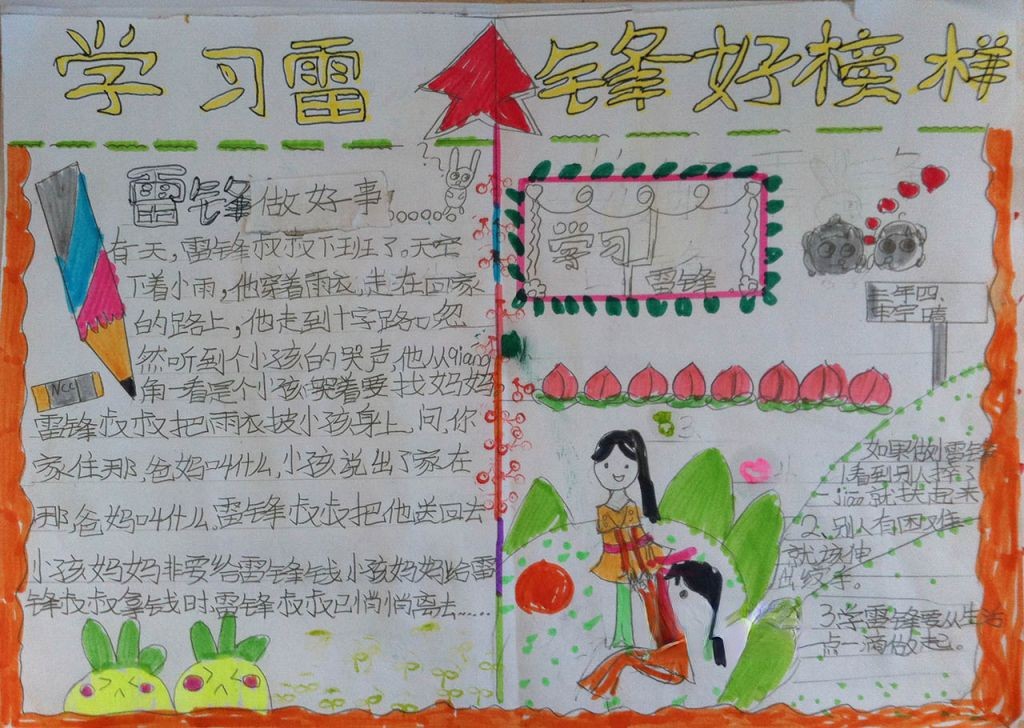 学习雷锋好榜样
雷锋做好事
有一天,雷锋叔叔下班了。天空
下着小雨,他穿着雨衣.走在回家
的路上,他走到十字路口,忽
然听到个小孩的哭声,他从qiang
角一看是个小孩哭着要找妈妈
雷锋叔叔把雨衣披小孩身上,问,你
家住那,爸妈叫什么,小孩说出了家在
那,爸妈叫什么,雷锋叔叔把他送回去
小孩妈妈非要给雷锋钱,小孩妈妈给雷
锋叔叔拿钱时,雷锋叔叔已悄悄离去……
NCC
学习
雷锋
年四、
如果做小雷锋
1看到别人摔了
一jiao就扶起来
2、别人有困难
就该伸
出缓手。
3学雷锋要从生活
一点一滴做起。